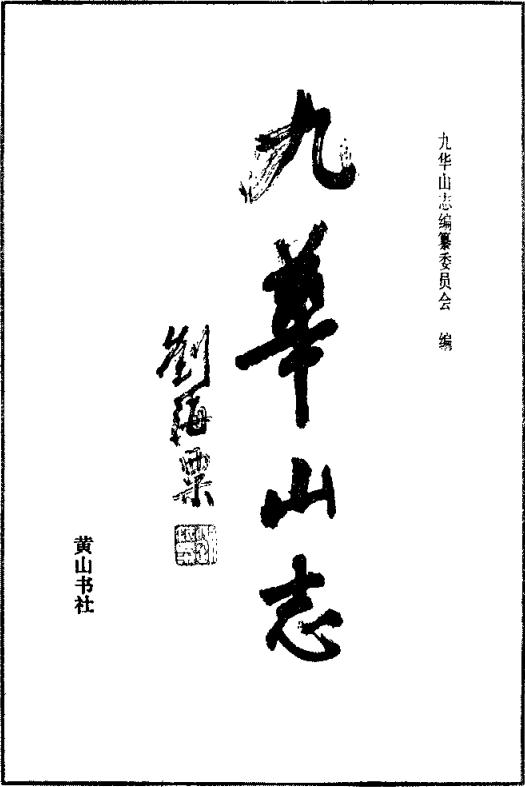 九华山志编纂委员会 编
九華山志
劉海粟
黄山书社